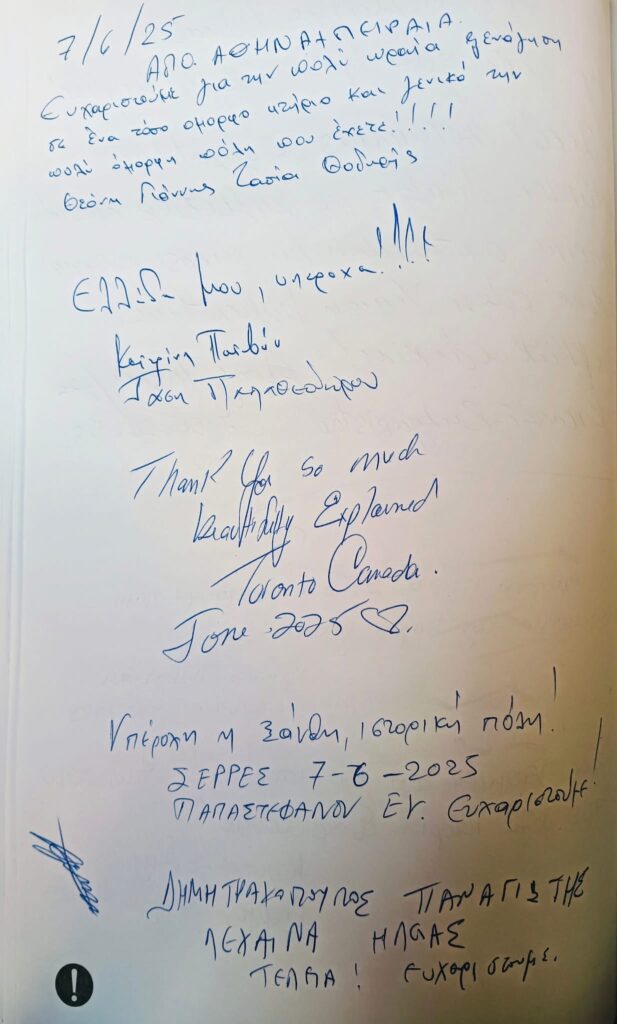 7/6/25
ΑΠΟ ΑΘΗΝΑ + ΠΕΙΡΑΙΑ.
Ευχαριστούμε για την πολύ ωραία ξενάγηση
σε ένα τόσο όμορφο κτήριο και γενικά την
πολύ όμορφη πόλη που έχετε!!!!!
Θεόνη Γιάννης Τασία Θοδωρής
Ελλάδα μου, υπεροχα!!!!
Τάση Παπαθεοδώρου
Thank You so much
beautifully Explained
Toronto Canada.
June 2025 ♡.
Υπέροχη η Ξάνθη, ιστορική πόλη!
ΣΕΡΡΕΣ 7-6-2025
ΠΑΠΑΣΤΕΦΑΝΟΥ ΕΥ. Ευχαριστούμε!
ΔΗΜΗΤΡΑΚΟΠΟΥΛΟΣ ΠΑΝΑΓΙΩΤΗΣ
ΛΕΧΑΙΝΑ ΗΛΕΙΑΣ
ΤΕΛΕΙΑ! ευχαριστουμε.